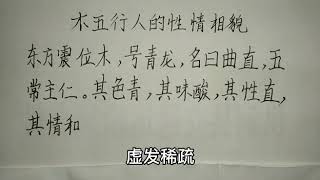 木五行人的性情相貌
东方震位木，号青龙，名曰曲直，五
常主仁。其色青，其味酸，其性直，
其情和
虚发稀疏